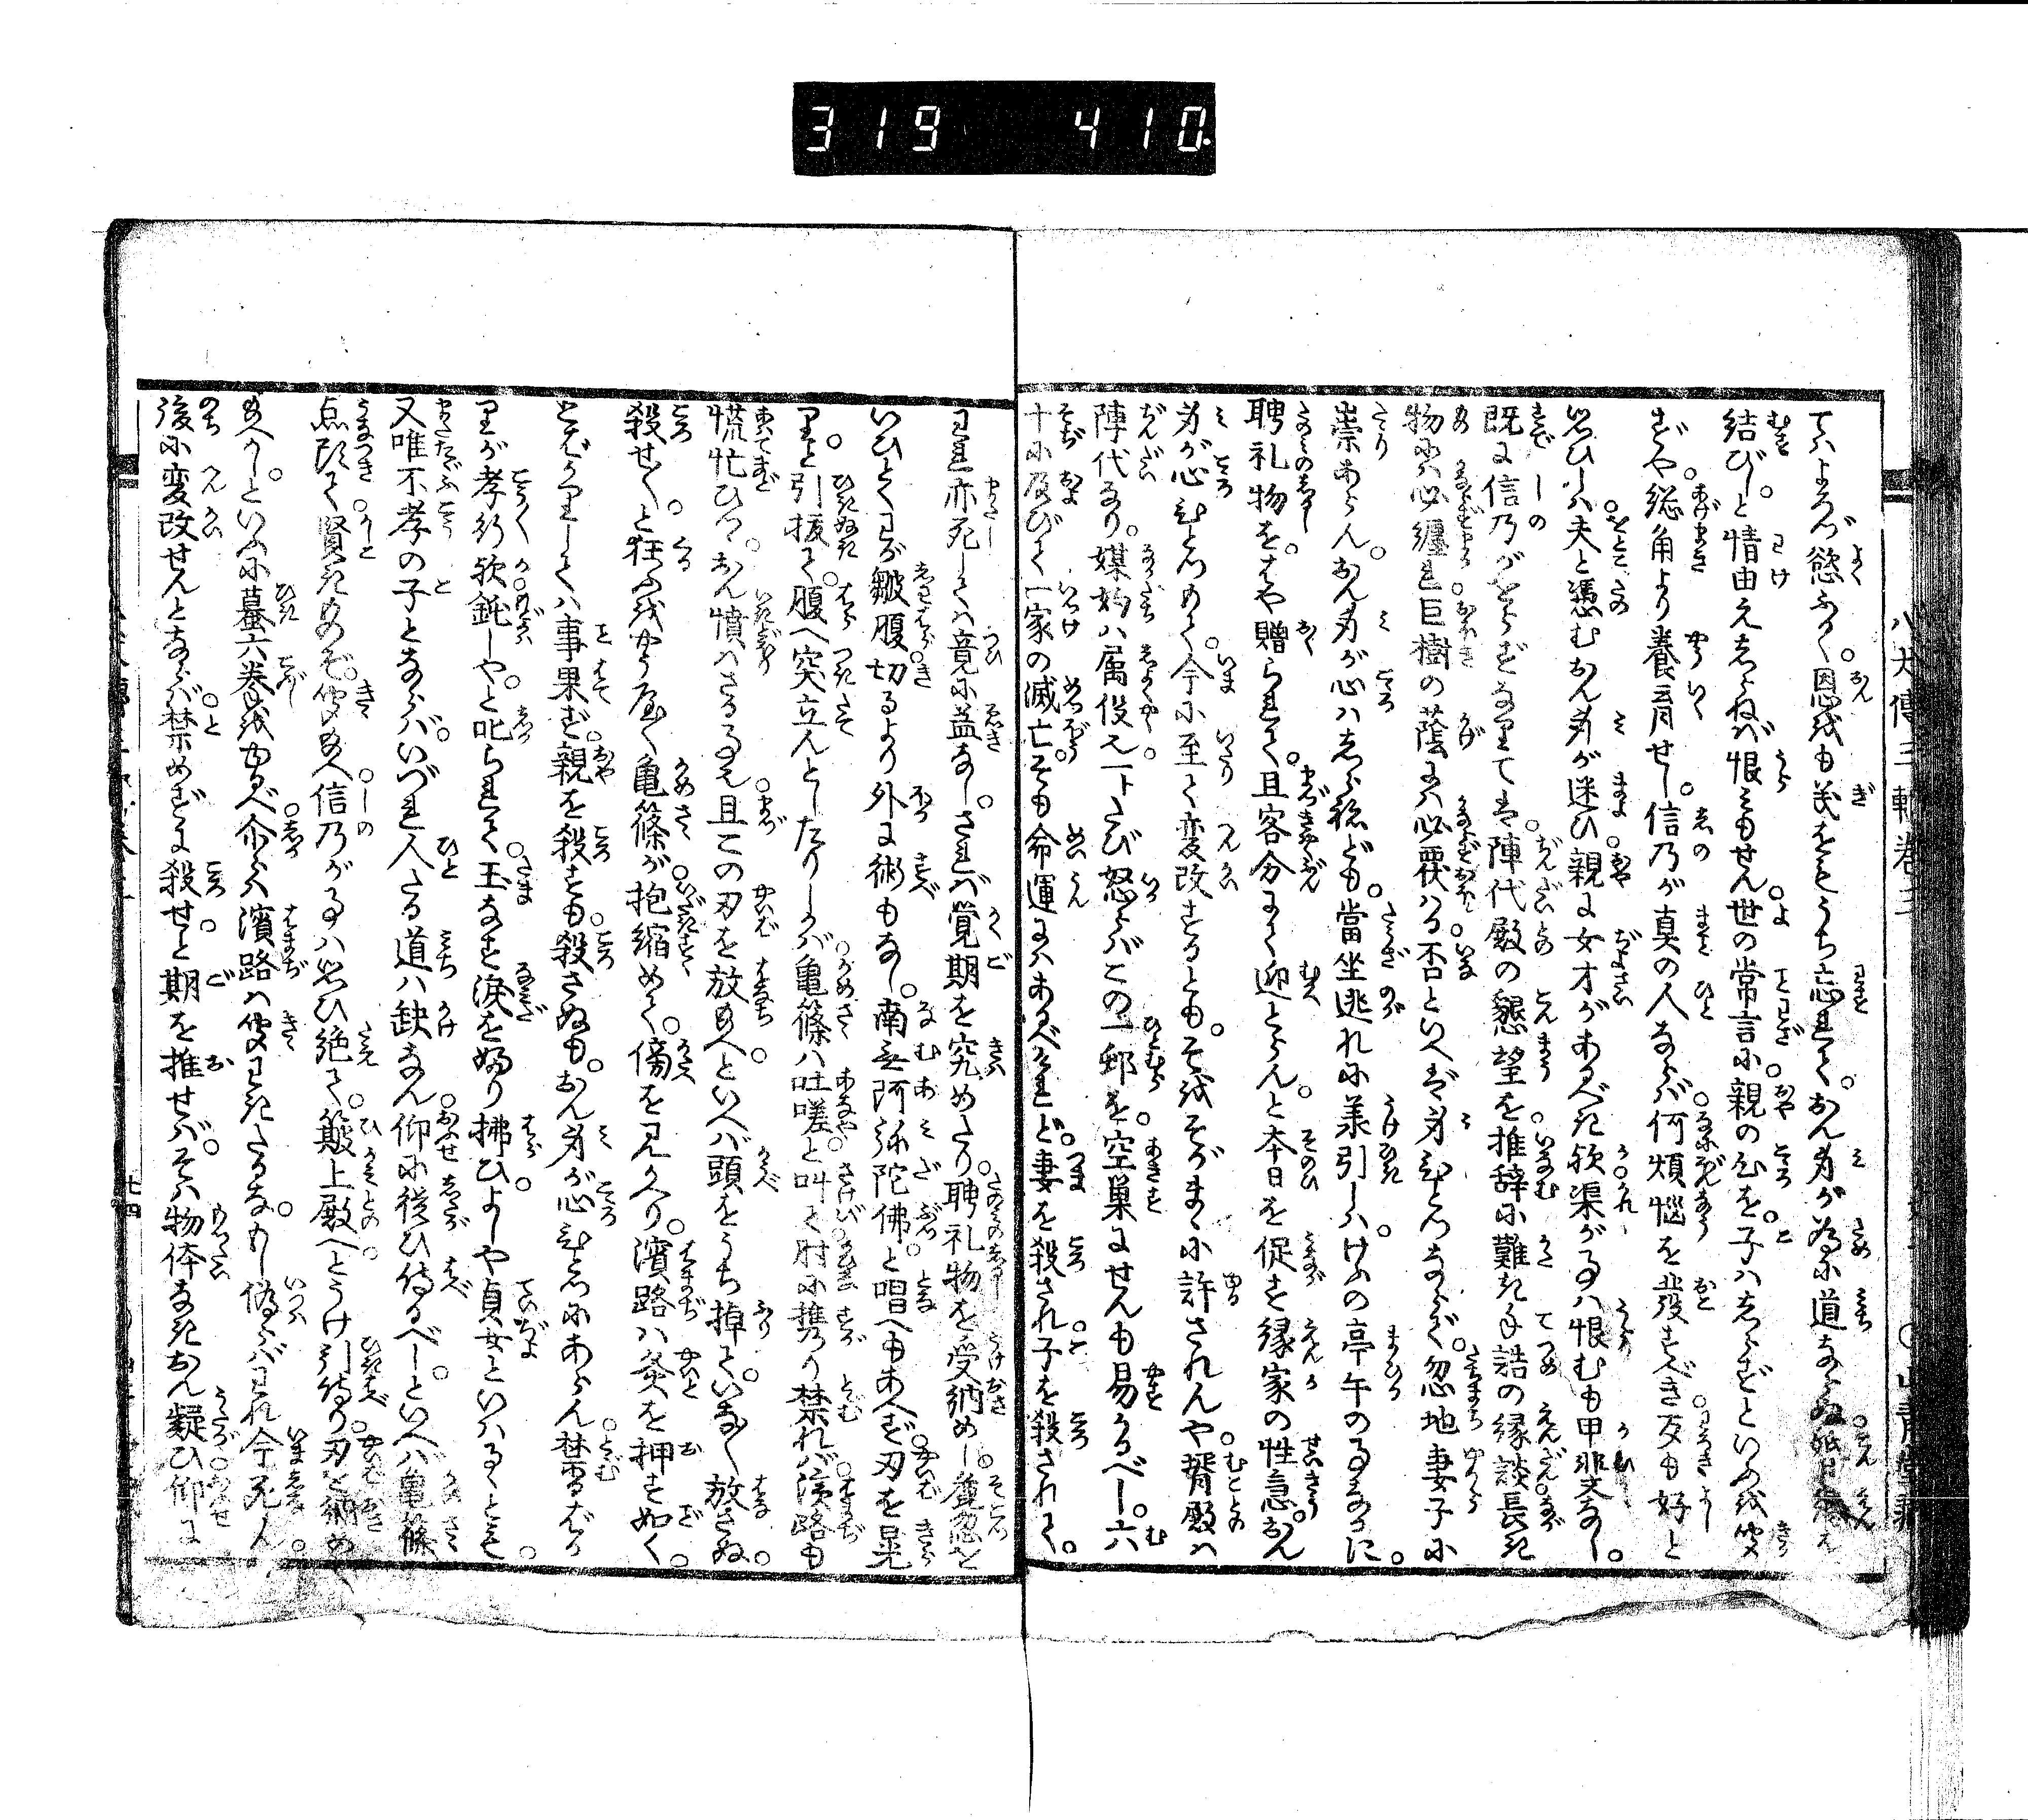 319 410.
八犬傳三輯巻三
てハよろづ慾ふかく恩をも義をもうち忘れて。おん身が為に道ならぬ
結びし。情由をしらねバ恨みもせん。世の常言に親のこゝろを子ハしらずといふを聞
ずや。総角より養育せし。信乃が真の人ならバ何煩悩を發すべき。友も好と
思ひしハ夫と憑むおん身が迷ひ。親に女才があるべき歟。渠が事ハ恨むも甲斐なし。
既に信乃がをらずなりてハ。陣代殿の懇望を。推辞に難き手詰の縁談。長き
物にハ必纏れ。巨樹の蔭にハ必覆ハる。否といへバ身ひとつならず。忽地妻子に
祟あらん。おん身が心ハしらねども。當坐逃れに承引しハ。けふの亭午の事なるに。
聘礼物を。はや贈られて。且客分にて迎とらん。と本日を促す縁家の性急。おん
身が心ひとつもて。今に至て変改するとも。そをそがまゝに許されんや。壻殿ハ
陣代なり。媒妁ハ属役也。一トたび怒らバこの一郷を。空巣にせんも易かるべし。六
十に及びて一家の滅亡。そも命運にハあるべけれど。妻を殺され子を殺されて。
われ亦死してハ竟に益なし。されバ覚期を究めたり。聘礼物を受納めし。麁忽を
いひとくわが皺腹。切るより外に術もなし。南無阿弥陀佛。と唱へもあへず。刃を晃
りと引抜て。腹へ突立んとしたりしかバ。亀篠ハ吐嗟と叫て。肘に携り禁れバ。濱路も
慌忙ひつゝ。おん憤ハさる事也。且この刃を放給へ。といへバ頭をうち掉て。いなし放さぬ。
殺せ〳〵。と狂ふをやう屋く亀篠が。抱縮めて。傍を見かへり。濱路ハ灸を押ず如く。
とばかりしてハ事果ず。親を殺すも。殺さぬも。おん身が心ひとつにあらん。禁るばかり
りが孝行歟。鈍しや。と叱られて。玉なす涙を拂り拂ひ。よしや貞女といハるゝとも。
又唯不孝の子とならバ。いづれ人たる道ハ缺なん。仰に従ひ侍るべし。といへバ亀篠
点頭て。賢きものぞ。聞給へ。信乃が事ハ思ひ絶て。簸上殿へとうけ引侍り。刃を納め
給へかし。といふに蟇六拳をゆるべ。尓らバ濱路ハ聞わきたるな。もし偽らバわれ今死ん。
後に変改せんとならバ。禁めずに殺せ。と期を推せバ。そハ物体なきおん疑ひ。仰に
廿四